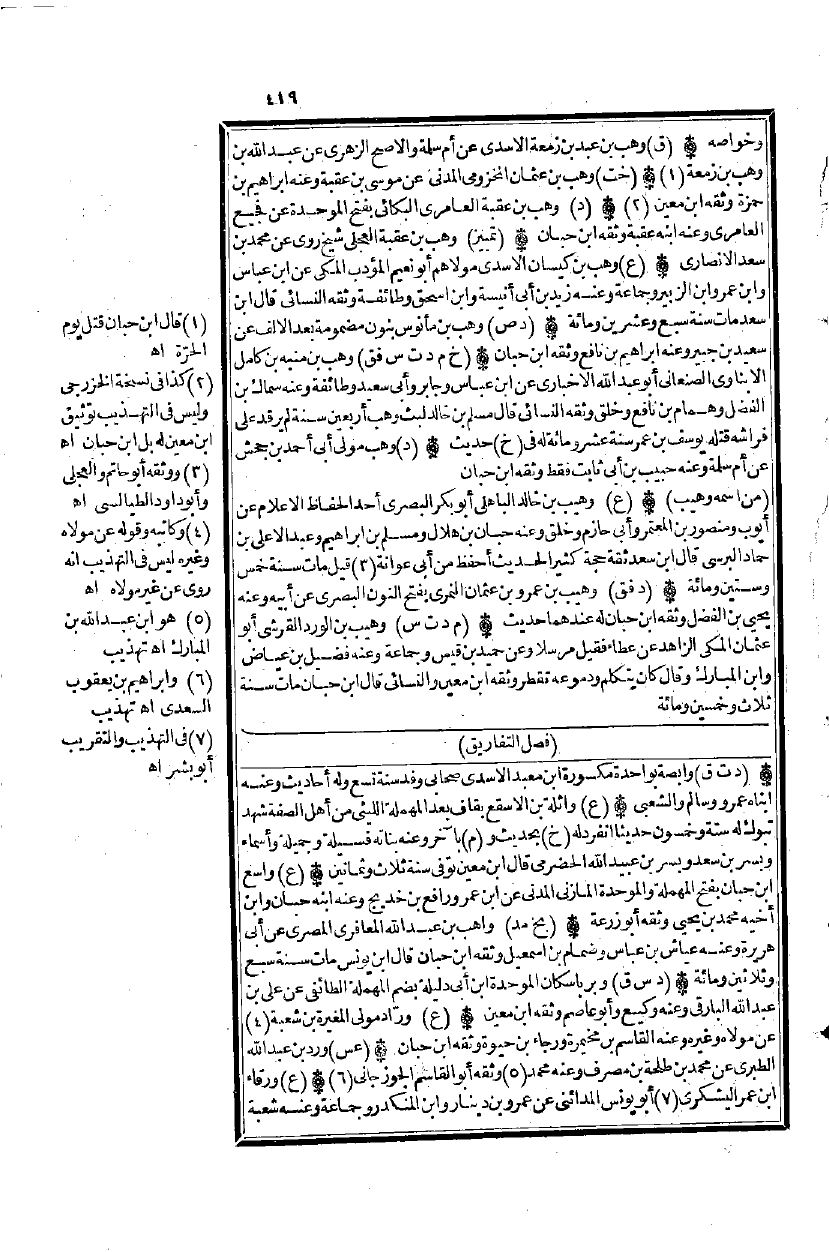 ٤١٩
وخواصه ۞ (ق) وهب بن عبد بن زمعة الاسدى عن أم سلمة والاصح الزهرى عن عبد الله بن
وهب بن زمعة (١) ۞ (خت) وهب بن عثمان المخزومى المدنى عن موسى بن عقبة وعنه ابراهيم بن
حمزة وثقه ابن معين (٢) ۞ (د) وهب بن عقبة العامرى البكائى بفتح الموحدة عن فجيع
العامرى وعنه ابنه عقبة وثقه ابن حبان ۞ (تمييز) وهب بن عقبة العجلى شيخ روى عن محمد بن
سعد الانصارى ۞ (ع) وهب بن كيسان الاسدى مولاهم أبو نعيم المؤدب المكى عن ابن عباس
وابن عمر وابن الزبير وجماعة وعنه زيد بن أبى أنيسة وابن اسحق وطائفة وثقه النسائى قال ابن
سعد مات سنة سبع وعشرين ومائة ۞ (د ص) وهب بن مأنوس بنون مضمومة بعد الالف عن
سعيد بن جبير وعنه ابراهيم بن نافع وثقه ابن حبان ۞ (خ م د ت س فق) وهب بن منبه بن كامل
الابناوى الصنعانى أبو عبد الله الاخبارى عن ابن عباس وجابر وأبى سعيد وطائفة وعنه سماك بن
الفضل وهمام بن نافع وخلق وثقه النسائى قال مسلم بن خالد لبث وهب أربعين سنة لم يرقد على
فراشه قتله يوسف بن عمر سنة عشر ومائة له فى (خ) حديث ۞ (د) وهب مولى أبى أحمد بن جحش
عن أم سلمة وعنه حبيب بن أبى ثابت فقط وثقه ابن حبان
(من اسمه وهيب) ۞ (ع) وهيب بن خالد الباهلى أبو بكر البصرى أحد الحفاظ الاعلام عن
أيوب ومنصور بن المعتمر وأبى حازم وخلق وعنه حبان بن هلال ومسلم بن ابراهيم وعبد الاعلى بن
حماد النرسى قال ابن سعد ثقة حجة كثير الحديث أحفظ من أبى عوانة (٣) قيل مات سنة خمس
وستين ومائة ۞ (د فق) وهيب بن عمرو بن عثمان النمرى بفتح النون البصرى عن أبيه وعنه
يحيى بن الفضل وثقه ابن حبان له عندهما حديث ۞ (م د ت س) وهيب بن الورد القرشى أبو
عثمان المكى الزاهد عن عطاء فقيل مرسلا وعن حميد بن قيس وجماعة وعنه فضيل بن عياض
وابن المبارك وقال كان يتكلم ودموعه تقطر وثقه ابن معين والنسائى قال ابن حبان مات سنة
ثلاث وخمسين ومائة
(فصل التفاريق)
۞ (د ت ق) وابصة بواحدة مكسورة ابن معبد الاسدى صحابى وفد سنة تسع وله أحاديث وعنه
ابناه عمرو وسالم والشعبى ۞ (ع) واثلة بن الاسقع بقاف بعد المهملة الليثى من أهل الصفة شهد
تبوك له ستة وخمسون حديثا انفرد له (خ) بحديث و (م) بآخر وعنه بناته فسيلة وجميلة وأسماء
وبسر بن سعد وبسر بن عبيد الله الحضرمى قال ابن معين توفى سنة ثلاث وثمانين ۞ (ع) واسع
ابن حبان بفتح المهملة والموحدة المازنى المدنى عن ابن عمر ورافع بن خديج وعنه ابنه حبان وابن
أخيه محمد بن يحيى وثقه أبو زرعة ۞ (بخ مد) واهب بن عبد الله المعافرى المصرى عن أبى
هريرة وعنه عياش بن عباس وضمام بن اسمعيل وثقه ابن حبان قال ابن يونس مات سنة سبع
وثلاثين ومائة ۞ (د س ق) وبر باسكان الموحدة ابن أبى دليلة بضم المهملة الطائفى عن على بن
عبد الله البارقى وعنه وكيع وأبو عاصم وثقه ابن معين ۞ (ع) وراد مولى المغيرة بن شعبة (٤)
عن مولاه وغيره وعنه القاسم بن مخيمرة ورجاء بن حيوة وثقه ابن حبان ۞ (عس) ورد بن عبد الله
الطبرى عن محمد بن طلحة بن مصرف وعنه محمد (٥) وثقه أبو القاسم الجوزجانى (٦) ۞ (ع) ورقاء
ابن عمر اليشكرى (٧) أبو يونس المدائنى عن عمرو بن دينار وابن المنكدر وجماعة وعنه شعبة
(١) قال ابن حبان قتل يوم
الحرّة اه
(٢) كذا فى نسخة الخزرجى
وليس فى التهذيب توثيق
ابن معين له بل ابن حبان اه
(٣) ووثقه أبو حاتم والعجلى
وأبو داود الطيالسى اه
(٤) وكاتبه وقوله عن مولاه
وغيره ليس فى التهذيب انه
روى عن غير مولاه اه
(٥) هو ابن عبد الله بن
المبارك اه تهذيب
(٦) وابراهيم بن يعقوب
السعدى اه تهذيب
(٧) فى التهذيب والتقريب
أبو بشر اه